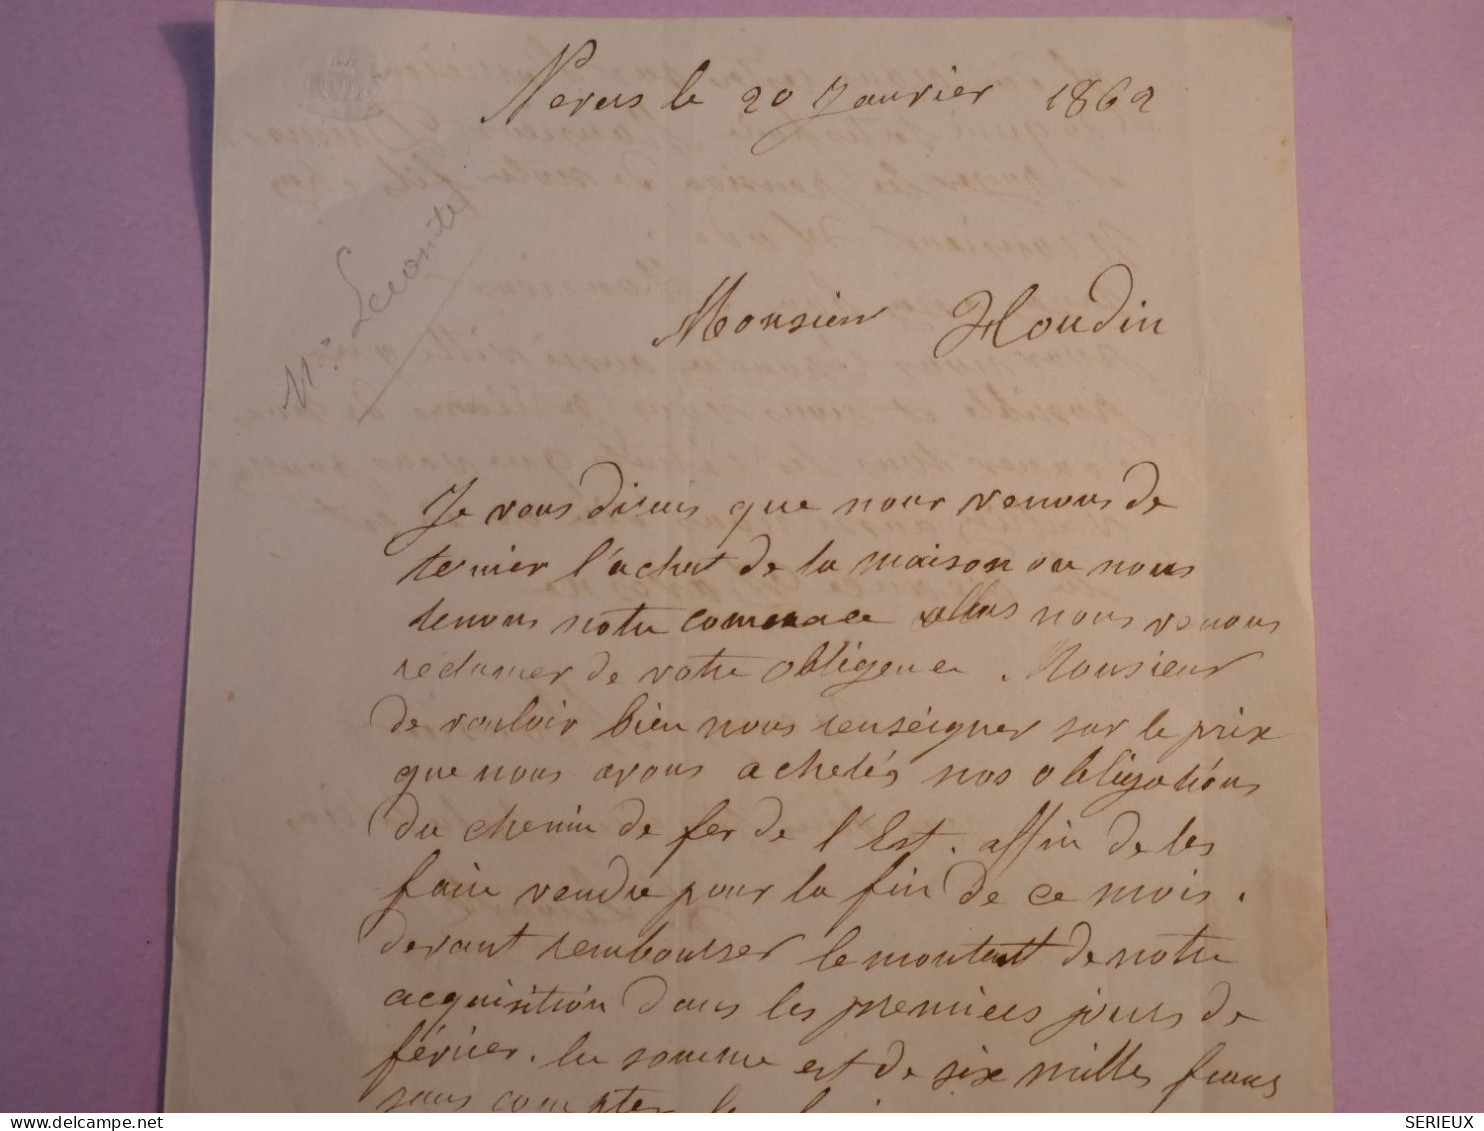 Nerus le 20 Janvier 1862
Leconte
Monsieur Houdin
Je vous direns que nour venons de
ternier l'achat de la maison ou nous
tenons notre commerce allors nous venons
reclamer de votre obligence. Monsieur
de vouloir bien nous renseigner sur le prix
que nous avons achetés nos obligations
du chemin de fer de l'Est. affin de les
faire vendre pour la fin de ce mois.
devant rembourser le montant de notre
acquisition dans les premiers jours de
février. la somme est de six milles francs
sans compter
delcampe.net
SERIEUX